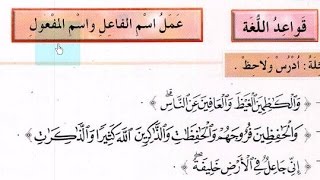 قَواعِدُ اللُّغَة
عَمَلُ اسْمِ الفاعِلِ واسْمِ المَفْعول
ثِلَةُ : اُدْرُسْ وَلاحِظْ .
﴿ وَالْكَاظِمِينَ الْغَيْظَ وَالْعَافِينَ عَنِ النَّاسِ ﴾ .
﴿ وَالْحَافِظِينَ فُرُوجَهُمْ وَالْحَافِظَاتِ وَالذَّاكِرِينَ اللَّهَ كَثِيرًا وَالذَّاكِرَاتِ ﴾ .
﴿ إِنِّي جَاعِلٌ فِي الْأَرْضِ خَلِيفَةً ﴾ .